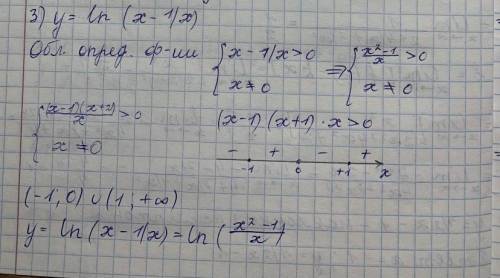 3) y = ln (x - 1/x)
Обл. опред. ф-ии { x - 1/x > 0 ; x ≠ 0 ⇒ { (x² - 1)/x > 0 ; x ≠ 0
{ (x-1)(x+1)/x > 0 ; x ≠ 0 (x-1)(x+1)·x > 0
- + - +
-1 0 +1 x
(-1; 0) ∪ (1; +∞)
y = ln (x - 1/x) = ln ((x² - 1)/x)